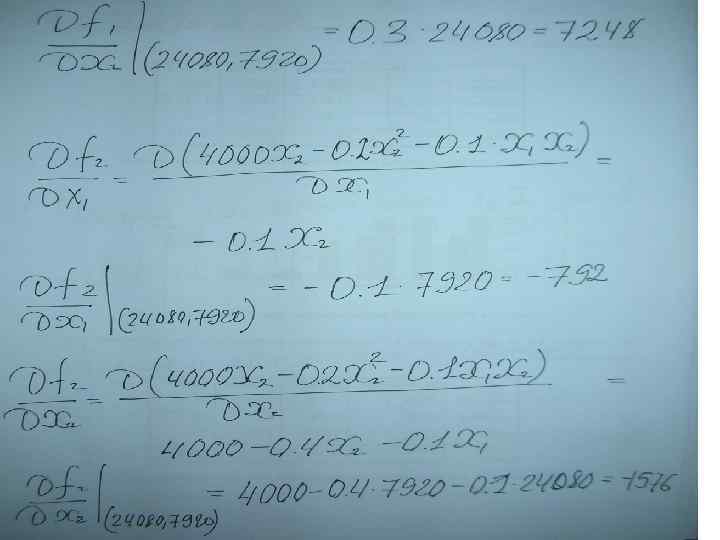 Df₁/Dx₂ |(24080,7920) = 0.3 · 24080 = 7248
Df₂/Dx₁ = D(4000x₂ - 0.2x₂² - 0.1 · x₁ x₂)/Dx₁ =
- 0.1 x₂
Df₂/Dx₁ |(24080,7920) = - 0.1 · 7920 = -792
Df₂/Dx₂ = D(4000x₂ - 0.2x₂² - 0.1x₁x₂)/Dx₂ =
4000 - 0.4x₂ - 0.1x₁
Df₂/Dx₂ |(24080,7920) = 4000 - 0.4 · 7920 - 0.1 · 24080 = -1576